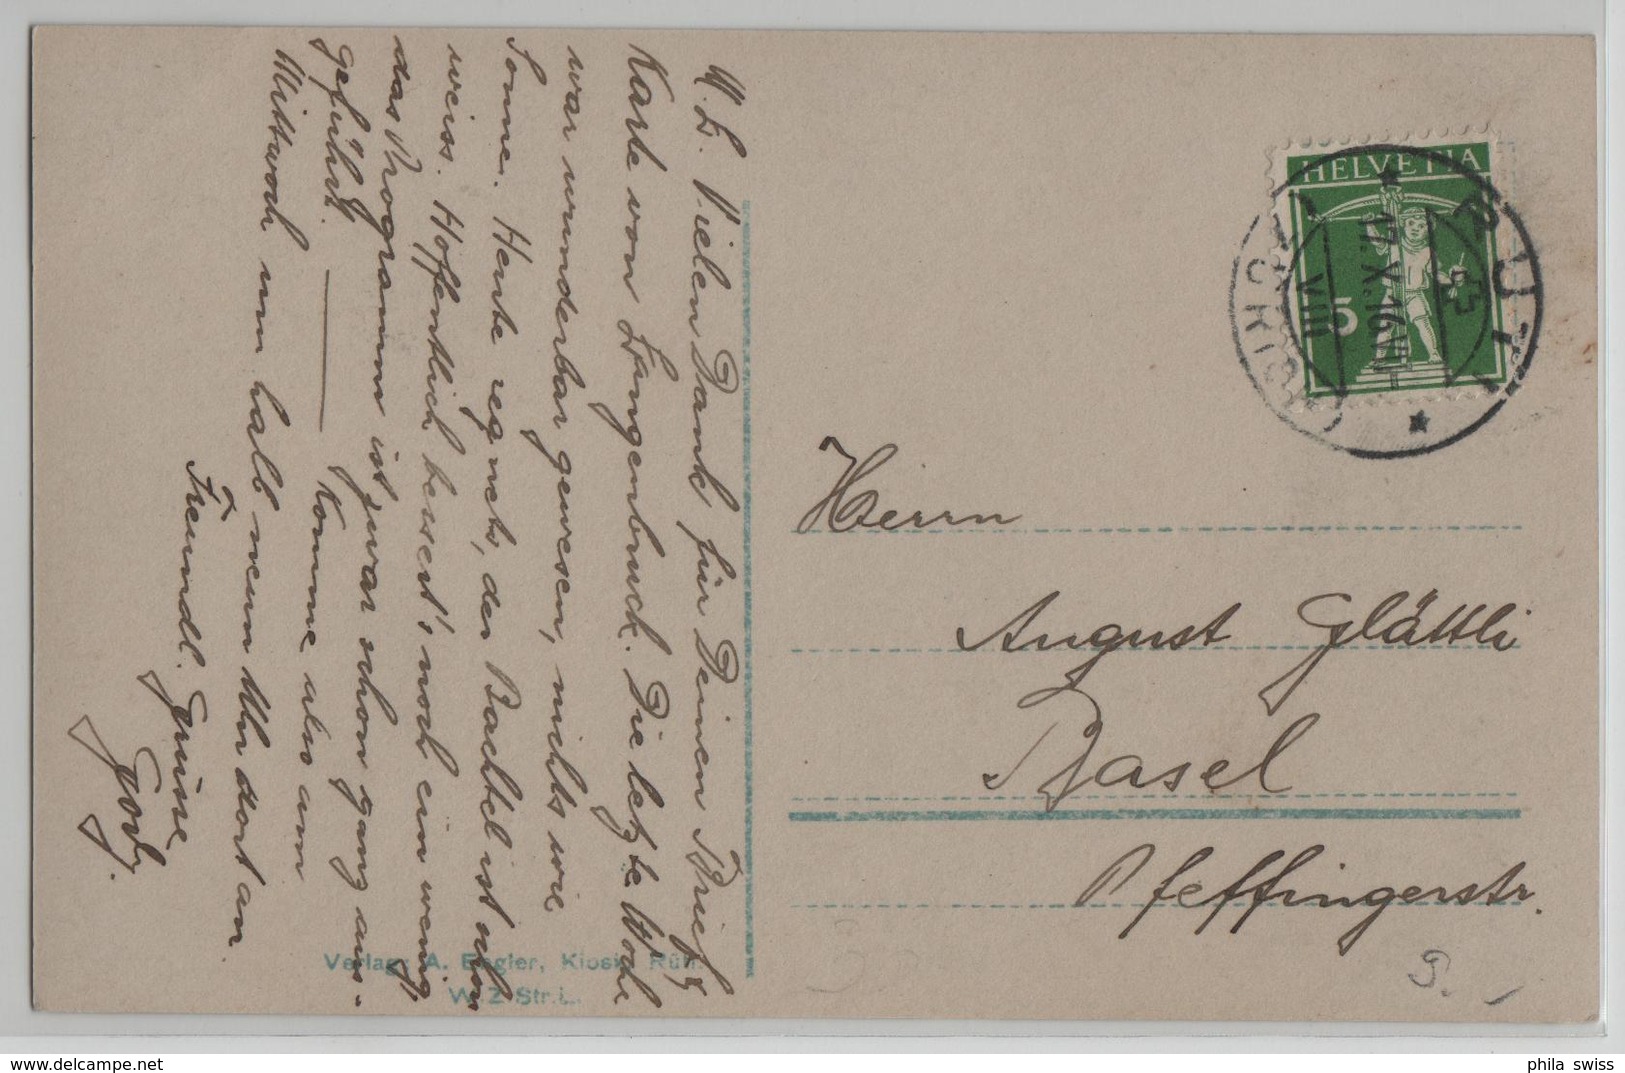 M. L. Vielen Dank für Deinen Brief &
Karte von Langenbruck. Die letzte Woche
war wunderbar gewesen, nichts wie
Sonne. Heute regnets, der Bachtel ist schon
weiss. Hoffentlich bessert's noch ein wenig,
das Programm ist zwar schon ganz aus-
geführt. — Komme also am
Mittwoch um halb neun Uhr dort an.
Freundl. Grüsse
HELVETIA
5
RÜTI
17.X.16.VII-
VIII
(ZÜRICH)
Herrn
August Glättli
Basel
Pfeffingerstr.
Verlag: A. Engler, Kiosk, Rüti.
W. Z. Str. L.
delcampe.net
phila_swiss